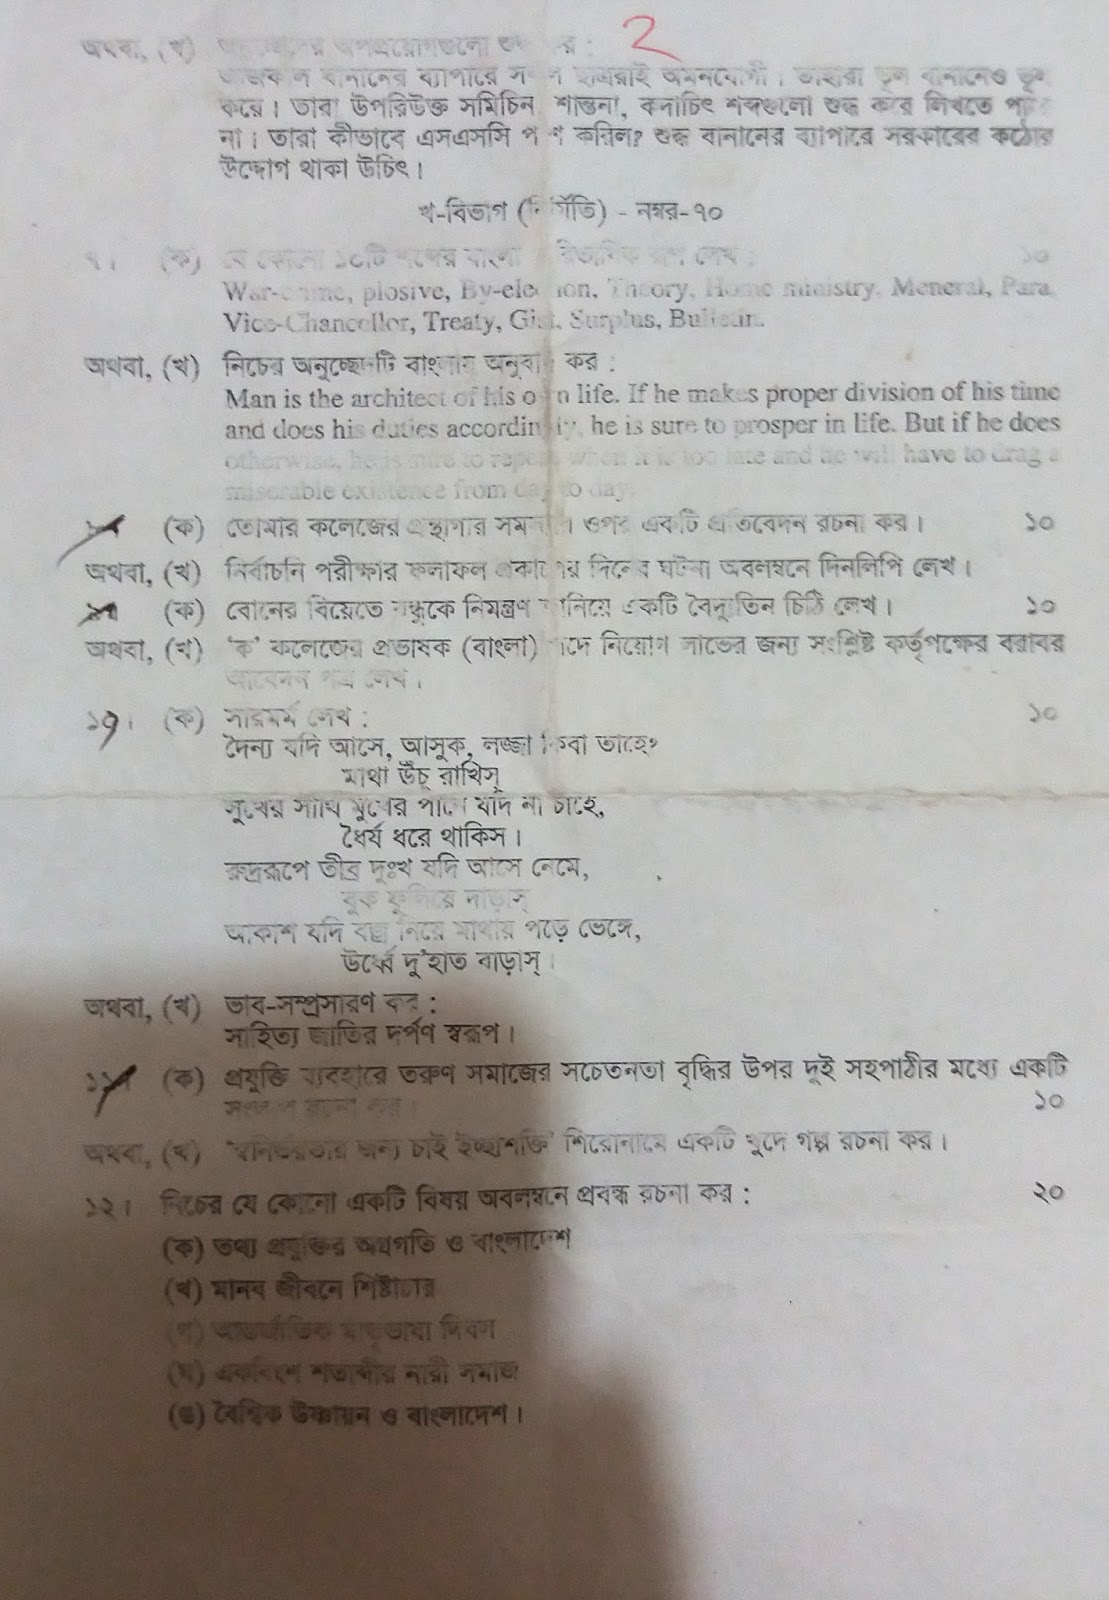 2
অথবা, (খ) অপপ্রয়োগগুলো শুদ্ধ কর :
আজকাল বানানের ব্যাপারে সকল ছাত্ররাই অমনযোগী। তাহারা ভুল বানানেও ভুল
করে। তারা উপরিউক্ত সমিচিন, শান্তনা, কদাচিৎ শব্দগুলো শুদ্ধ করে লিখতে পারে
না। তারা কীভাবে এসএসসি পাশ করিল? শুদ্ধ বানানের ব্যাপারে সরকারের কঠোর
উদ্দোগ থাকা উচিৎ।
খ-বিভাগ (নির্মিতি) - নম্বর-৭০
৭। (ক) যে কোনো ১০টি শব্দের বাংলা পারিভাষিক রূপ লেখ : ১০
War-crime, plosive, By-election, Theory, Home ministry, Meneral, Para,
Vice-Chancellor, Treaty, Gist, Surplus, Bulletin.
অথবা, (খ) নিচের অনুচ্ছেদটি বাংলায় অনুবাদ কর :
Man is the architect of his own life. If he makes proper division of his time
and does his duties accordingly, he is sure to prosper in life. But if he does
otherwise, he is sure to repent when it is too late and he will have to drag a
miserable existence from day to day.
(ক) তোমার কলেজের গ্রন্থাগার সমস্যার ওপর একটি প্রতিবেদন রচনা কর। ১০
অথবা, (খ) নির্বাচনি পরীক্ষার ফলাফল প্রকাশের দিনের ঘটনা অবলম্বনে দিনলিপি লেখ।
(ক) বোনের বিয়েতে বন্ধুকে নিমন্ত্রণ জানিয়ে একটি বৈদ্যুতিন চিঠি লেখ। ১০
অথবা, (খ) 'ক' কলেজের প্রভাষক (বাংলা) পদে নিয়োগ লাভের জন্য সংশ্লিষ্ট কর্তৃপক্ষের বরাবর
আবেদন পত্র লেখ।
১০। (ক) সারমর্ম লেখ : ১০
দৈন্য যদি আসে, আসুক, লজ্জা কিবা তাহে?
মাথা উঁচু রাখিস্
সুখের সাথি মুখের পানে যদি না চাহে,
ধৈর্য ধরে থাকিস।
রুদ্ররূপে তীব্র দুঃখ যদি আসে নেমে,
বুক ফুলিয়ে দাড়াস্
আকাশ যদি বজ্র নিয়ে মাথায় পড়ে ভেঙ্গে,
উর্ধ্বে দু'হাত বাড়াস্।
অথবা, (খ) ভাব-সম্প্রসারণ কর :
সাহিত্য জাতির দর্পণ স্বরূপ।
১১। (ক) প্রযুক্তি ব্যবহারে তরুণ সমাজের সচেতনতা বৃদ্ধির উপর দুই সহপাঠীর মধ্যে একটি
সংলাপ রচনা কর। ১০
অথবা, (খ) 'স্বনির্ভরতার জন্য চাই ইচ্ছাশক্তি' শিরোনামে একটি খুদে গল্প রচনা কর।
১২। নিচের যে কোনো একটি বিষয় অবলম্বনে প্রবন্ধ রচনা কর : ২০
(ক) তথ্য প্রযুক্তির অগ্রগতি ও বাংলাদেশ
(খ) মানব জীবনে শিষ্টাচার
(গ) আন্তর্জাতিক মাতৃভাষা দিবস
(ঘ) একবিংশ শতাব্দীর নারী সমাজ
(ঙ) বৈশ্বিক উষ্ণায়ন ও বাংলাদেশ।